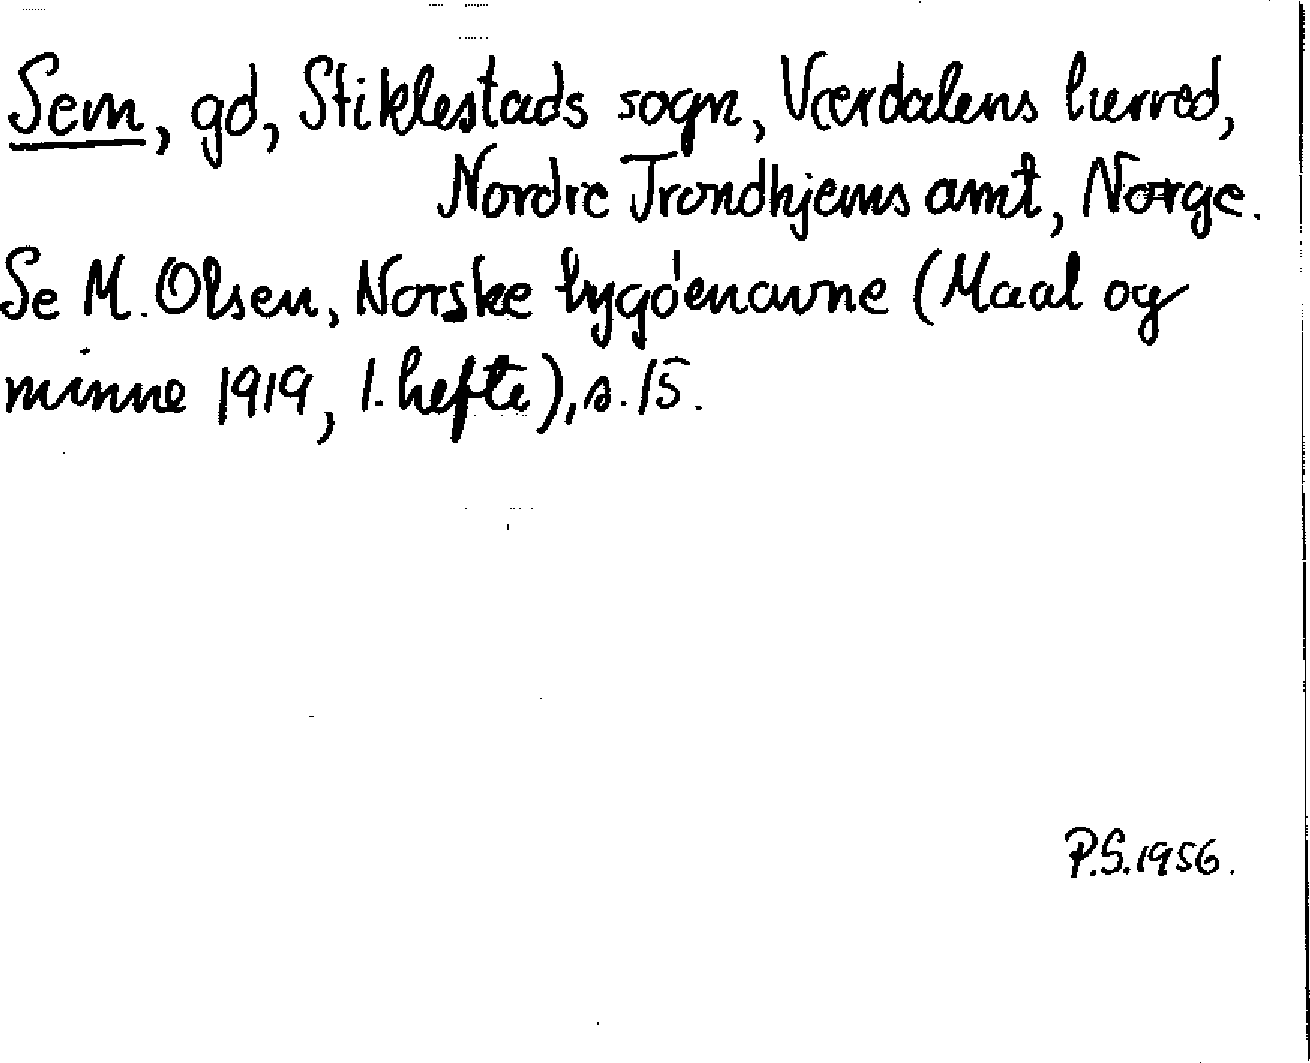 Sem, gd, Stiklestads sogn, Værdalens herred,
Nordre Trondhjems amt, Norge.
Se M. Olsen, Norske bygdenavne (Maal og
minne 1919, 1. hefte), s. 15.
P.S. 1956.